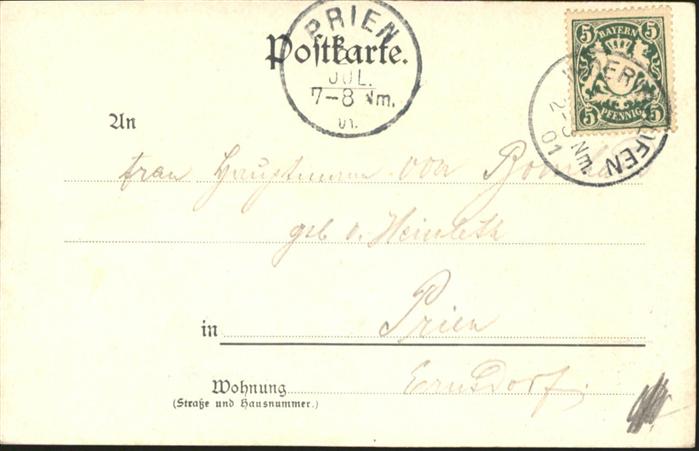 PRIEN
JUL.
7-8 Nm.
01.
Postkarte.
5 BAYERN 5
5 PFENNIG 5
2-3 NM
01
An
Frau Hauptmann von
geb v. Heinleth
in Prien
Wohnung Ernsdorf
(Straße und Hausnummer.)